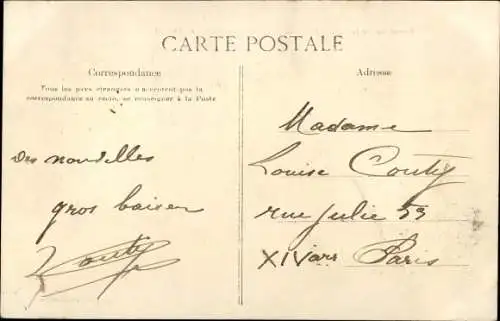 CARTE POSTALE
Correspondance
Tous les pays étrangers n'acceptent pas la
correspondance au recto, se renseigner à la Poste
Des nouvelles
gros baiser
Couty
Adresse
Madame
Louise Couty
rue Julie 53
XIV arr Paris